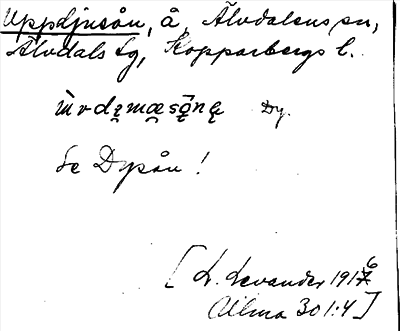 Uppdjusån, å, Älvdalens sn,
Älvdals tg, Kopparbergs l.
Dy.
Se Dysån!
[L. Levander 1916
Ullma 301:4]